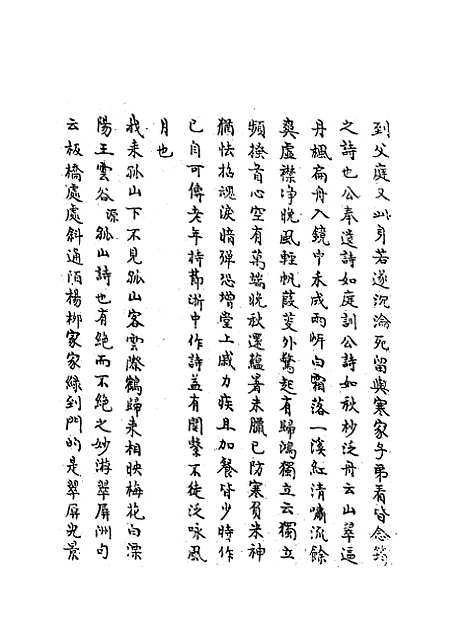 到父庭又此身若遂沉淪死留與寒家子弟看皆念
之詩也公奉遺詩如庭訓公詩如秋杪泛舟云山翠逼
丹楓扁舟入鏡中未成雨昕白霜落一溪紅清嘯流餘
奠虛襟淨晚風輕帆葭菼外驚起有歸鴻獨立云獨立
頻搔首心空有萬端晩秋還蘊暑未臘已防寒負米神
猶怯招魂淚暗彈恐增堂上戚力疾且加餐皆少時作
已自可傳矣年持節浙中作詩益有関繫不徒泛咏風
月也
我来孤山下不見孤山客雲際鶴歸来相映梅花白溧
陽王雲谷源孤山詩也有絶而不絶之妙游翠屏洲句
云板橋處處斜通陌楊柳家家綠到門的是翠屏光景